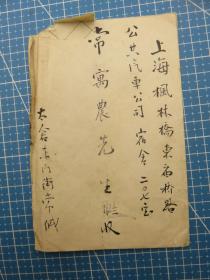 上海楓林橋東廟橋路
公共汽車公司宿舍二〇七室
常寓農先生 收
太倉東門街常緘